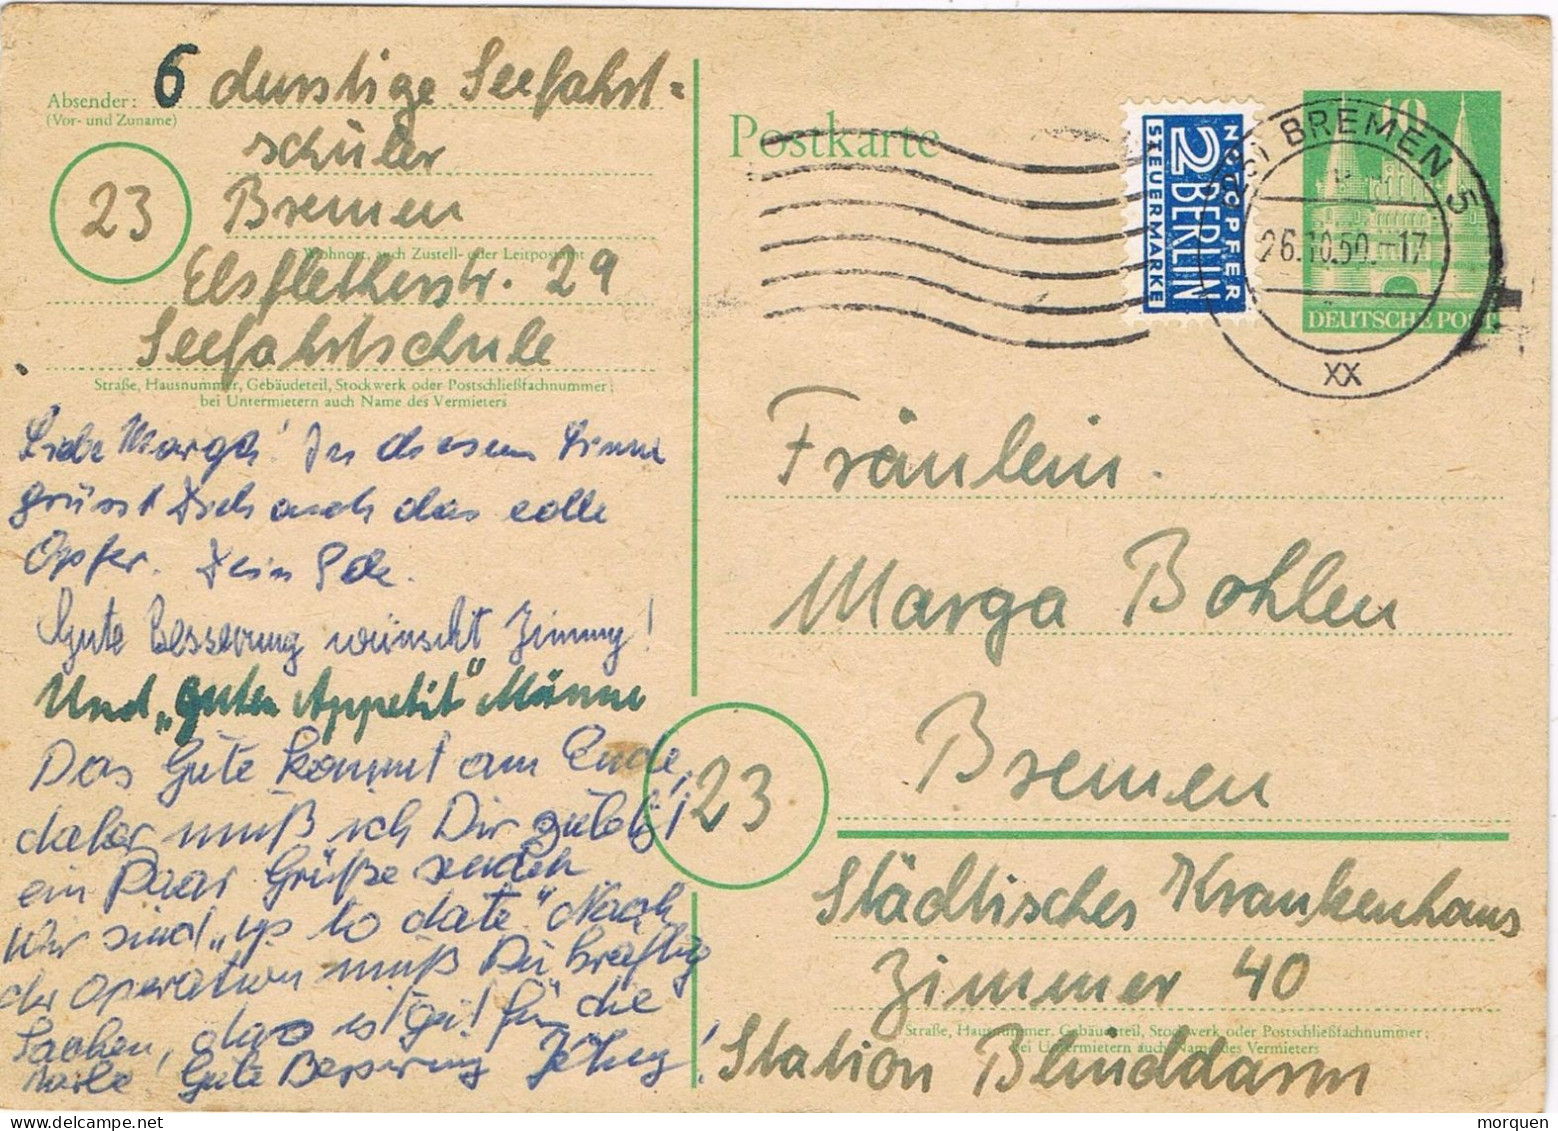 Absender:
(Vor- und Zuname)
6 durstige Seefahrt=
schüler
23
Bremen
Wohnort, auch Zustell- oder Leitpostamt
Elsfletherstr. 29
Seefahrtschule
Straße, Hausnummer, Gebäudeteil, Stockwerk oder Postschließfachnummer;
bei Untermietern auch Name des Vermieters
Liebe Marga! In diesem Sinne
grüsst Dich auch das edle
Opfer. Dein
Gute Besserung wünscht Jimmy!
Und „guten Appetit" Männe
Das Gute kommt am Ende,
daher muß ich Dir zuletzt
ein Paar Grüße senden
Wir sind „up to date." Nach
der Operation muß Du kräftig
lachen, das ist gut für die
Narbe! Gute Besserung
Postkarte
NOTOPFER
2 BERLIN
STEUERMARKE
BREMEN 5
26.10.50.-17
XX
10
DEUTSCHE POST
Fräulein.
Marga Bohlen
Bremen
23
Städtisches Krankenhaus
Zimmer 40
Straße, Hausnummer, Gebäudeteil, Stockwerk oder Postschließfachnummer;
bei Untermietern auch Name des Vermieters
Station Blinddarm
morquen